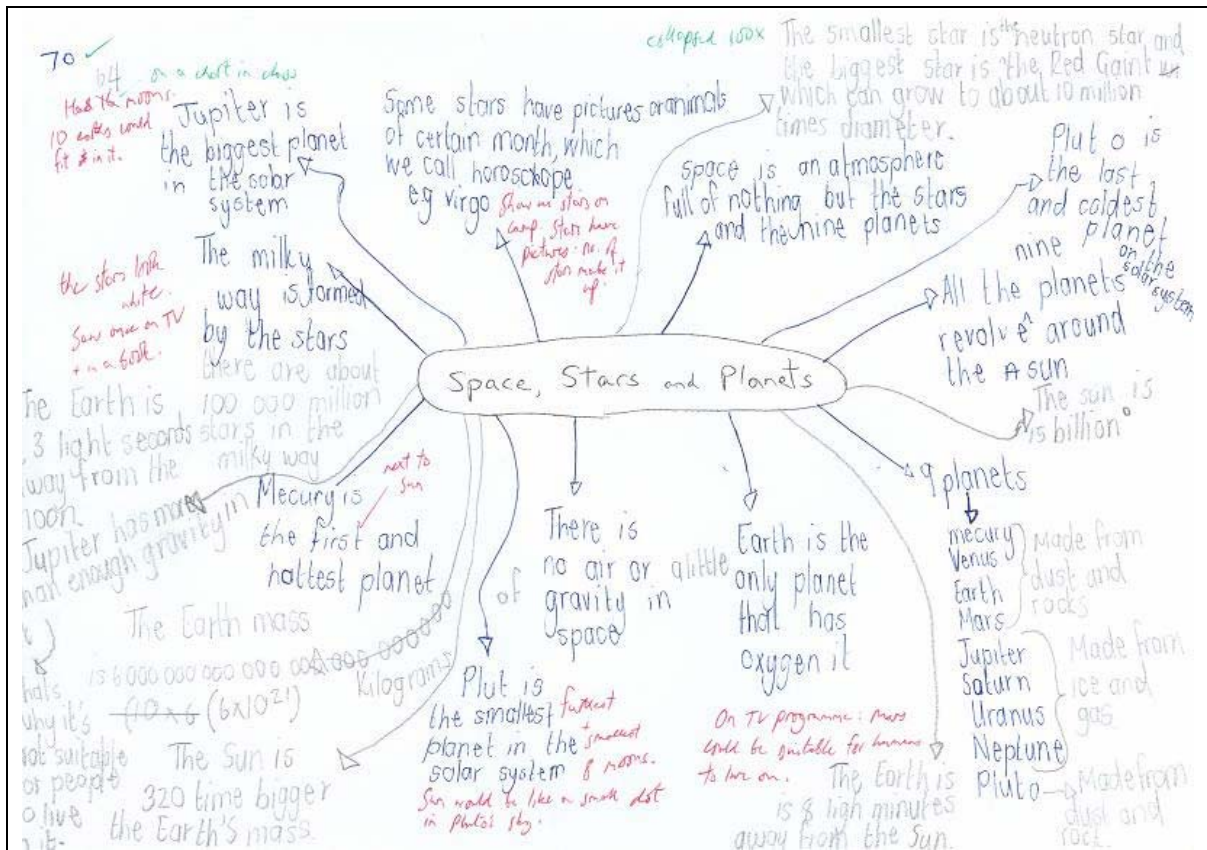 70 ✓
64 on a chart in class
Has the moons.
10 earths would
fit in it.
Jupiter is
the biggest planet
in the solar
system
Some stars have pictures or animals
of certain month, which
we call horoschope
eg virgo
Show us stars on
camp. Stars have
pictures. no. of
stars make it
up.
collapsed 100x
The smallest star is the neutron star and
the biggest star is the Red Gaint
which can grow to about 10 million
times diameter.
space is an atmosphere
full of nothing but the stars
and the nine planets
Plut o is
the last
and coldest
planet
on the
solar system
nine
All the planets
revolve ^ around
the sun
The milky
way is formed
by the stars
the stars look
white.
Saw once on TV
+ in a book.
there are about
100 000 million
stars in the
milky way
Space, Stars and Planets
The sun is
is billion°
he Earth is
3 light seconds
way from the
oon.
Jupiter has more
han enough gravity in
hats
why it's
not suitable
or people
o live
it.
Mecury is
the first and
hottest planet
next to
sun
The Earth mass
is 6000 000 000 000 000 000 000
of Kilograms
(6x10²¹)
The Sun is
320 time bigger
the Earth's mass.
Plut is
the smallest
planet in the
solar system
furthest
+ smallest
8 moons.
Sun would be like a small dot
in pluto's sky.
There is
no air or alittle
gravity in
space
Earth is the
only planet
that has
oxygen it
On TV programme: mars
could be suitable for humans
to live on.
The Earth is
is 8 ligh minutes
away from the Sun.
9 planets
mecury
Venus
Earth
Mars
Made from
dust and
rocks
Jupiter
Saturn
Uranus
Neptune
Made from
ice and
gas
Pluto
Made from
dust and
rock.